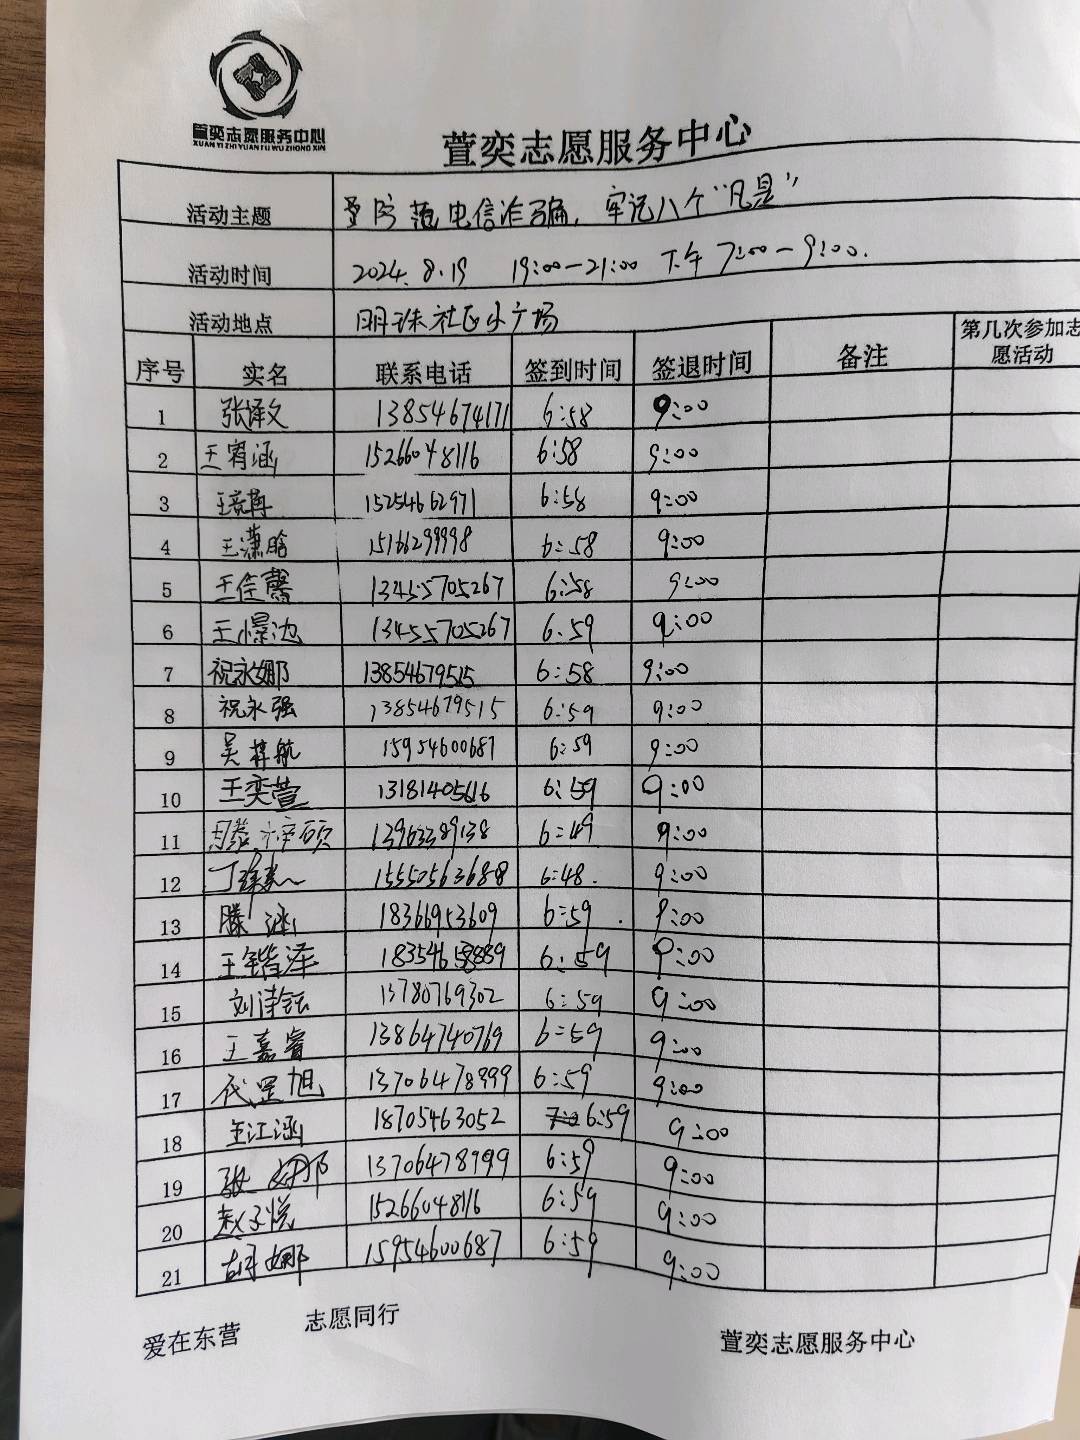 萱奕志愿服务中心
XUAN YI ZHI YUAN FU WU ZHONG XIN
萱奕志愿服务中心
活动主题 防范电信诈骗，牢记八个“凡是”
活动时间 2024.8.19 19:00-21:00 下午7:00-9:00.
活动地点 明珠社区小广场
序号 实名 联系电话 签到时间 签退时间 备注 第几次参加志愿活动
1 张译文 13854674171 6:58 9:00
2 王宥涵 15266048116 6:58 9:00
3 15254662971 6:58 9:00
4 王潇晗 15166299998 6:58 9:00
5 王佳馨 13455705267 6:58 9:00
6 13455705267 6:59 9:00
7 祝永娜 13854679515 6:58 9:00
8 祝永强 13854679515 6:59 9:00
9 吴梓航 15954600687 6:59 9:00
10 王奕萱 13181405616 6:59 9:00
11 13963389138 6:49 9:00
12 6:48. 9:00
13 滕涵 18366953609 6:59. 9:00
14 王锴泽 6:59 9:00
15 刘诗钰 13780769302 6:59 9:00
16 王嘉睿 13864740769 6:59 9:00
17 代罡旭 13706478999 6:59 9:00
18 王江涵 18705463052 6:59 9:00
19 张娜 13706478999 6:59 9:00
20 赵子悦 15266048116 6:59 9:00
21 胡娜 15954600687 6:59 9:00
爱在东营 志愿同行 萱奕志愿服务中心